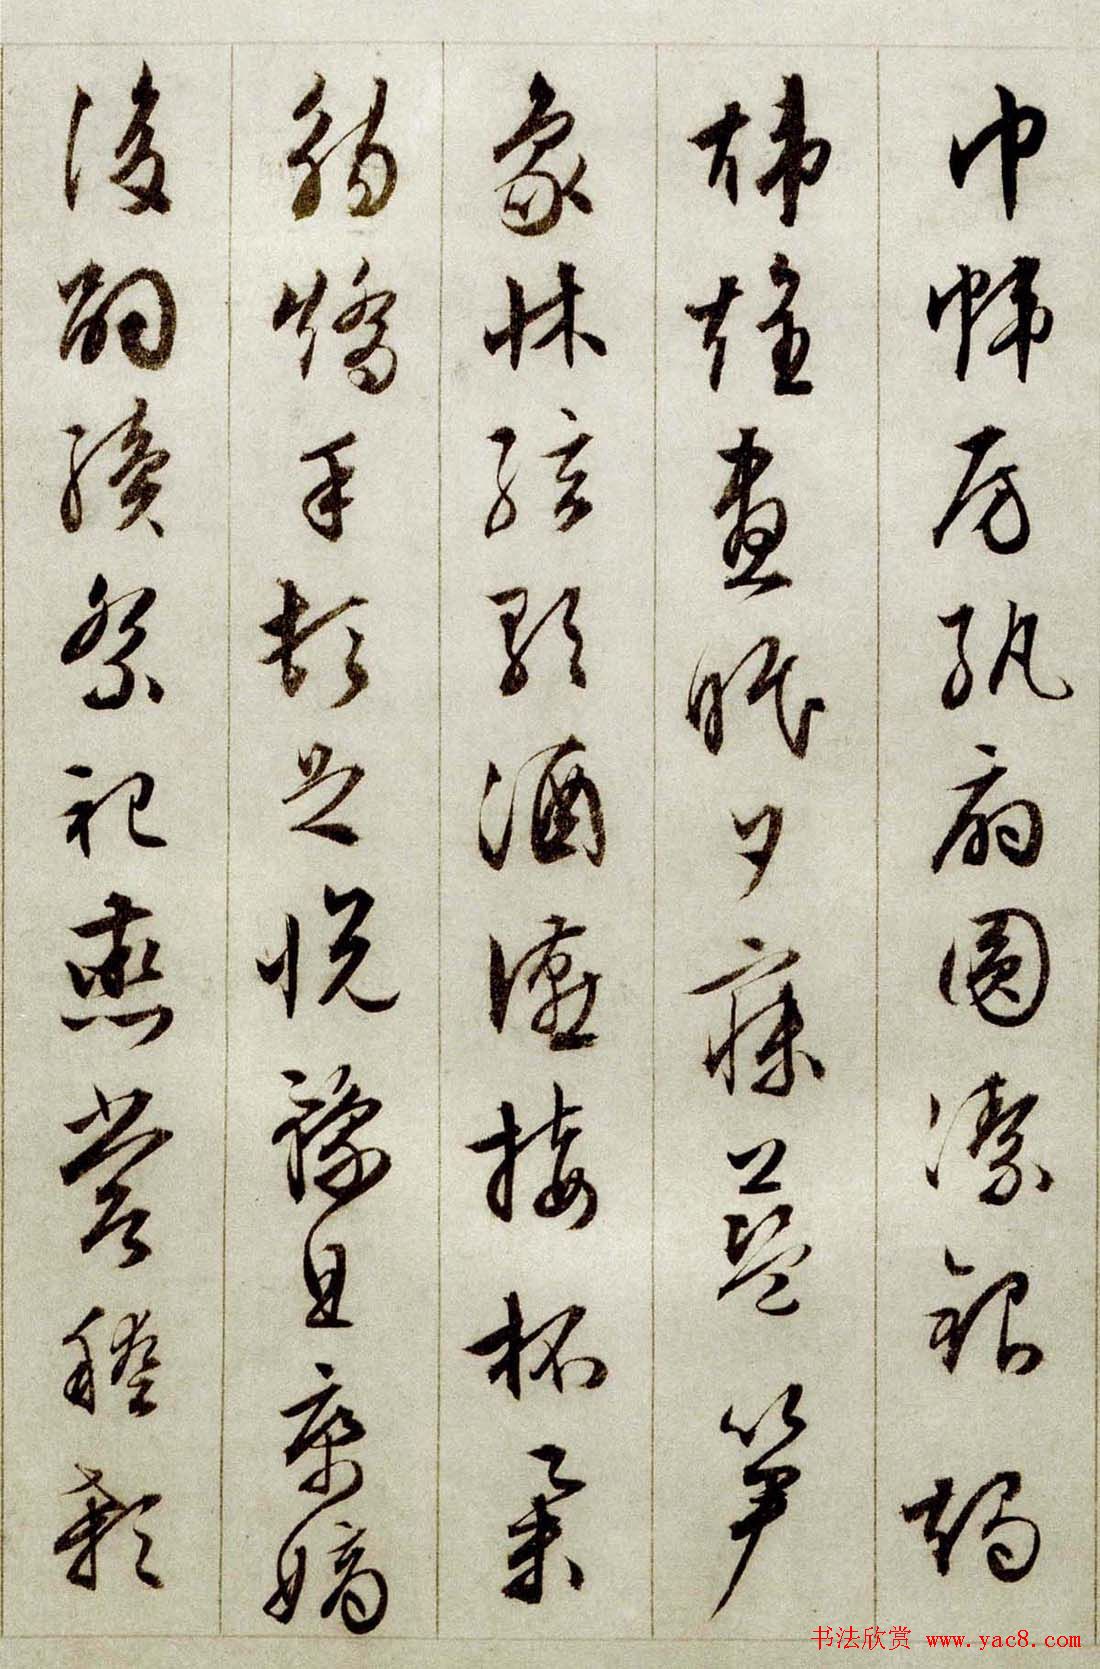 巾帷房紈扇圓潔銀燭
煒煌晝眠夕寐藍筍
象牀絃歌酒讌接杯舉
觴矯手頓足悅豫且康嫡
後嗣續祭祀蒸嘗稽顙
书法欣赏 www.yac8.com